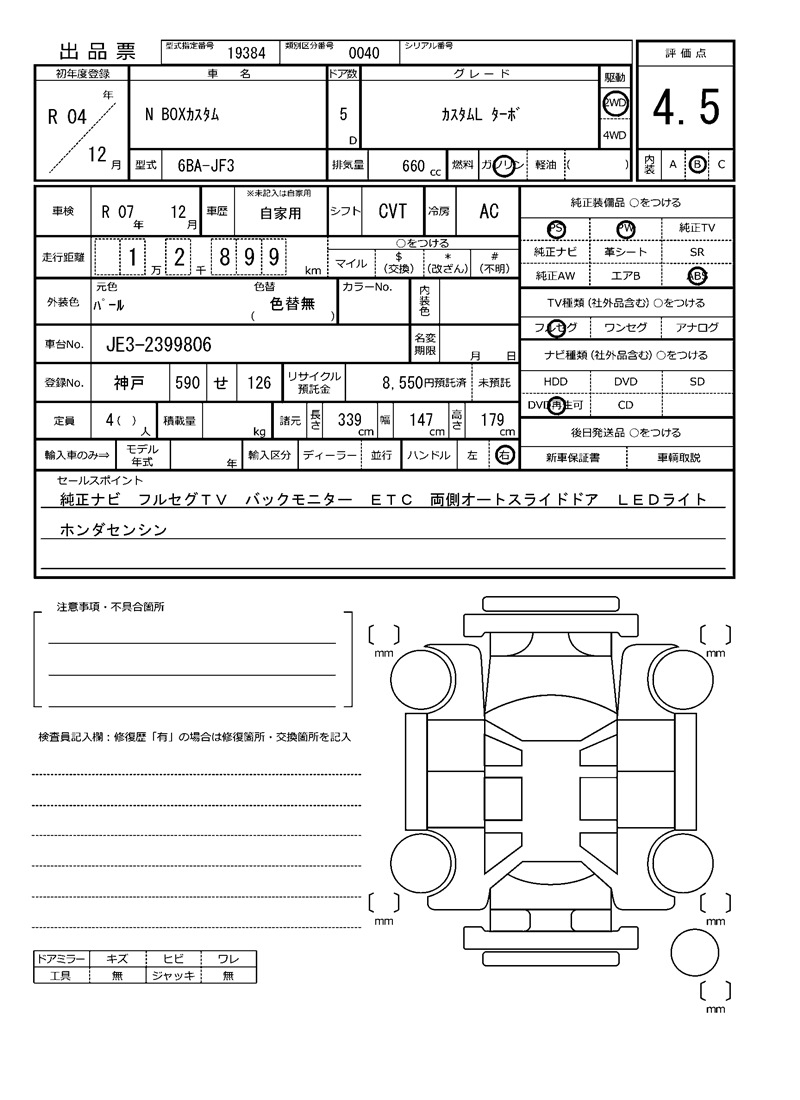 出品票 型式指定番号 19384 類別区分番号 0040 シリアル番号
評価点
4.5
内装 A B C
初年度登録 車名 ドア数 グレード 駆動
R 04 年 12 月 N BOXカスタム 5 D カスタムL ターボ 2WD
4WD
型式 6BA-JF3 排気量 660 cc 燃料 ガソリン 軽油 ( )
車検 R 07 年 12 月 車歴 ※未記入は自家用 自家用 シフト CVT 冷房 AC
走行距離 1 万 2 千 8 9 9 km ○をつける
マイル $(交換) *(改ざん) #(不明)
外装色 元色 パール 色替 ( 色替無 ) カラーNo. 内装色
車台No. JE3-2399806 名変期限 月 日
登録No. 神戸 590 せ 126 リサイクル預託金 8,550円預託済 未預託
定員 4 ( ) 人 積載量 kg 諸元 長さ 339 cm 幅 147 cm 高さ 179 cm
輸入車のみ⇒ モデル年式 年 輸入区分 ディーラー 並行 ハンドル 左 右
純正装備品 ○をつける
PS PW 純正TV
純正ナビ 革シート SR
純正AW エアB ABS
TV種類(社外品含む) ○をつける
フルセグ ワンセグ アナログ
ナビ種類(社外品含む) ○をつける
HDD DVD SD
DVD再生可 CD
後日発送品 ○をつける
新車保証書 車輌取説
セールスポイント
純正ナビ フルセグTV バックモニター ETC 両側オートスライドドア LEDライト
ホンダセンシン
注意事項・不具合箇所
検査員記入欄:修復歴「有」の場合は修復箇所・交換箇所を記入
ドアミラー キズ ヒビ ワレ
工具 無 ジャッキ 無
mm mm
mm mm
mm